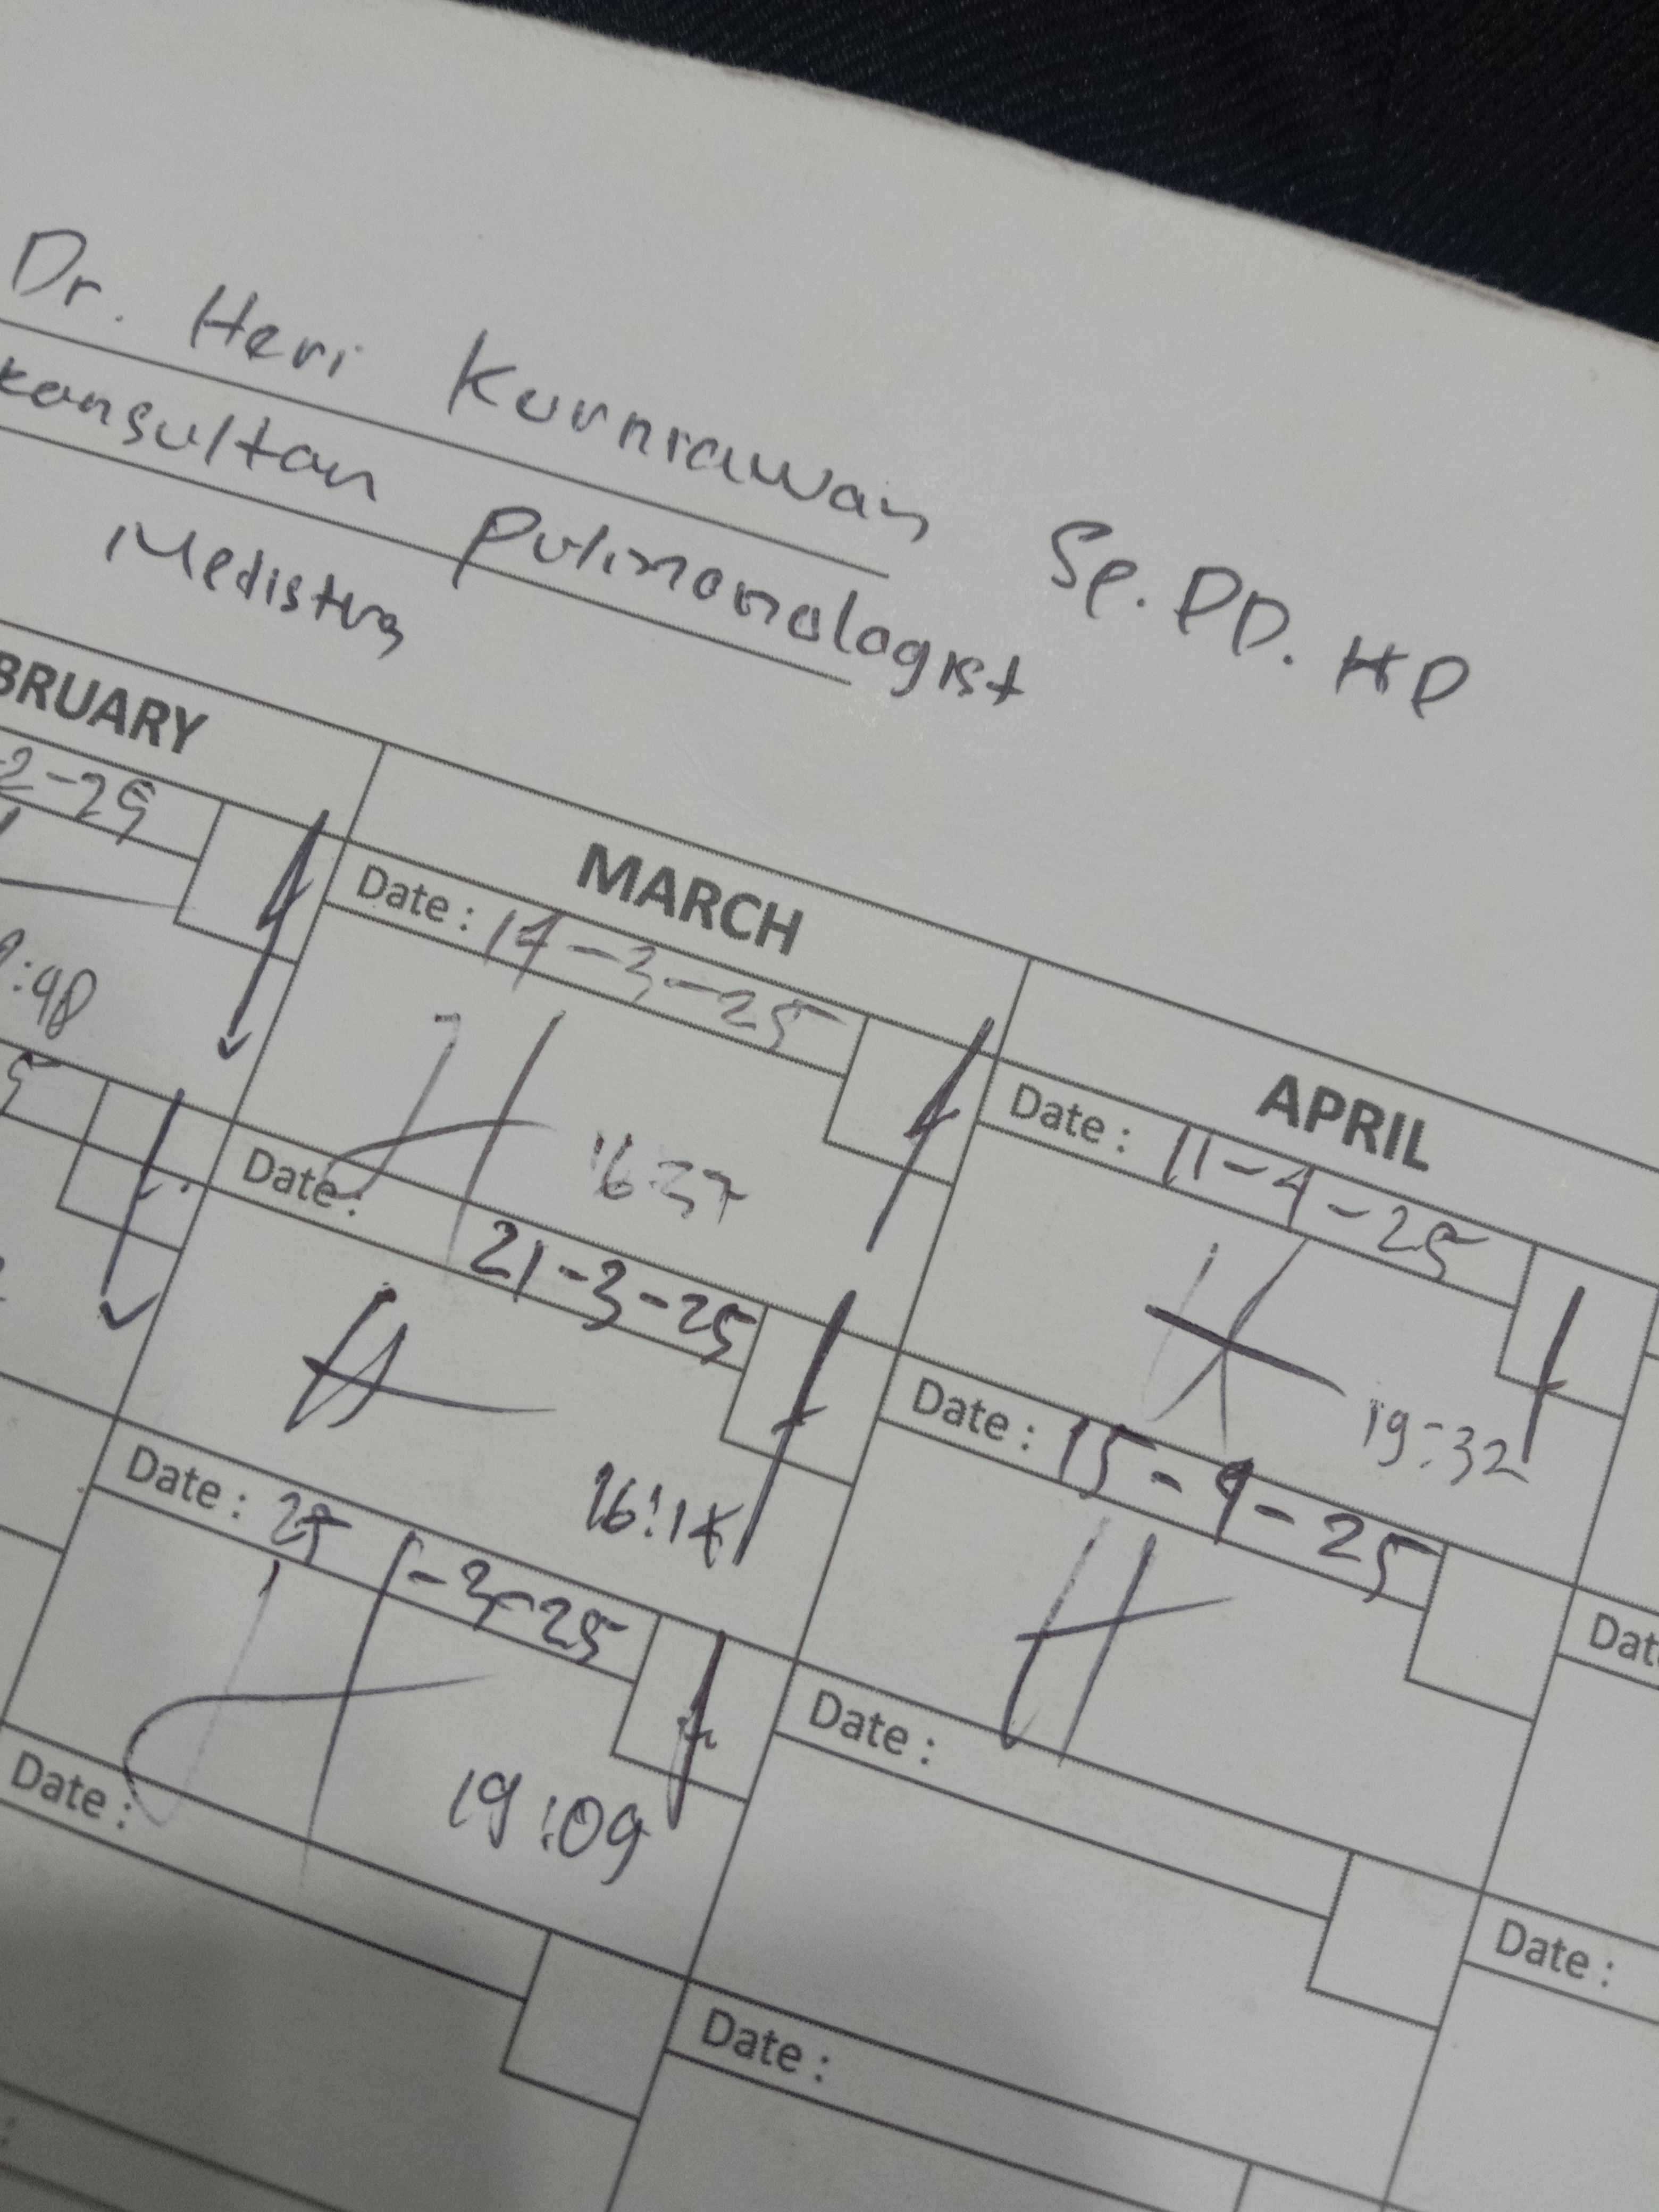 Dr. Heri Kurniawan Sp.PD. HP
Konsultan Pulmonologist
Medistra
BRUARY
MARCH
APRIL
2-25
:48
5
Date : 14-3-25
16:37
Date : 21-3-25
Date : 25-3-25
19:09
Date :
Date : 11-4-25
19:32
Date : 15-4-25
Date :
Date :
Dat
Date :